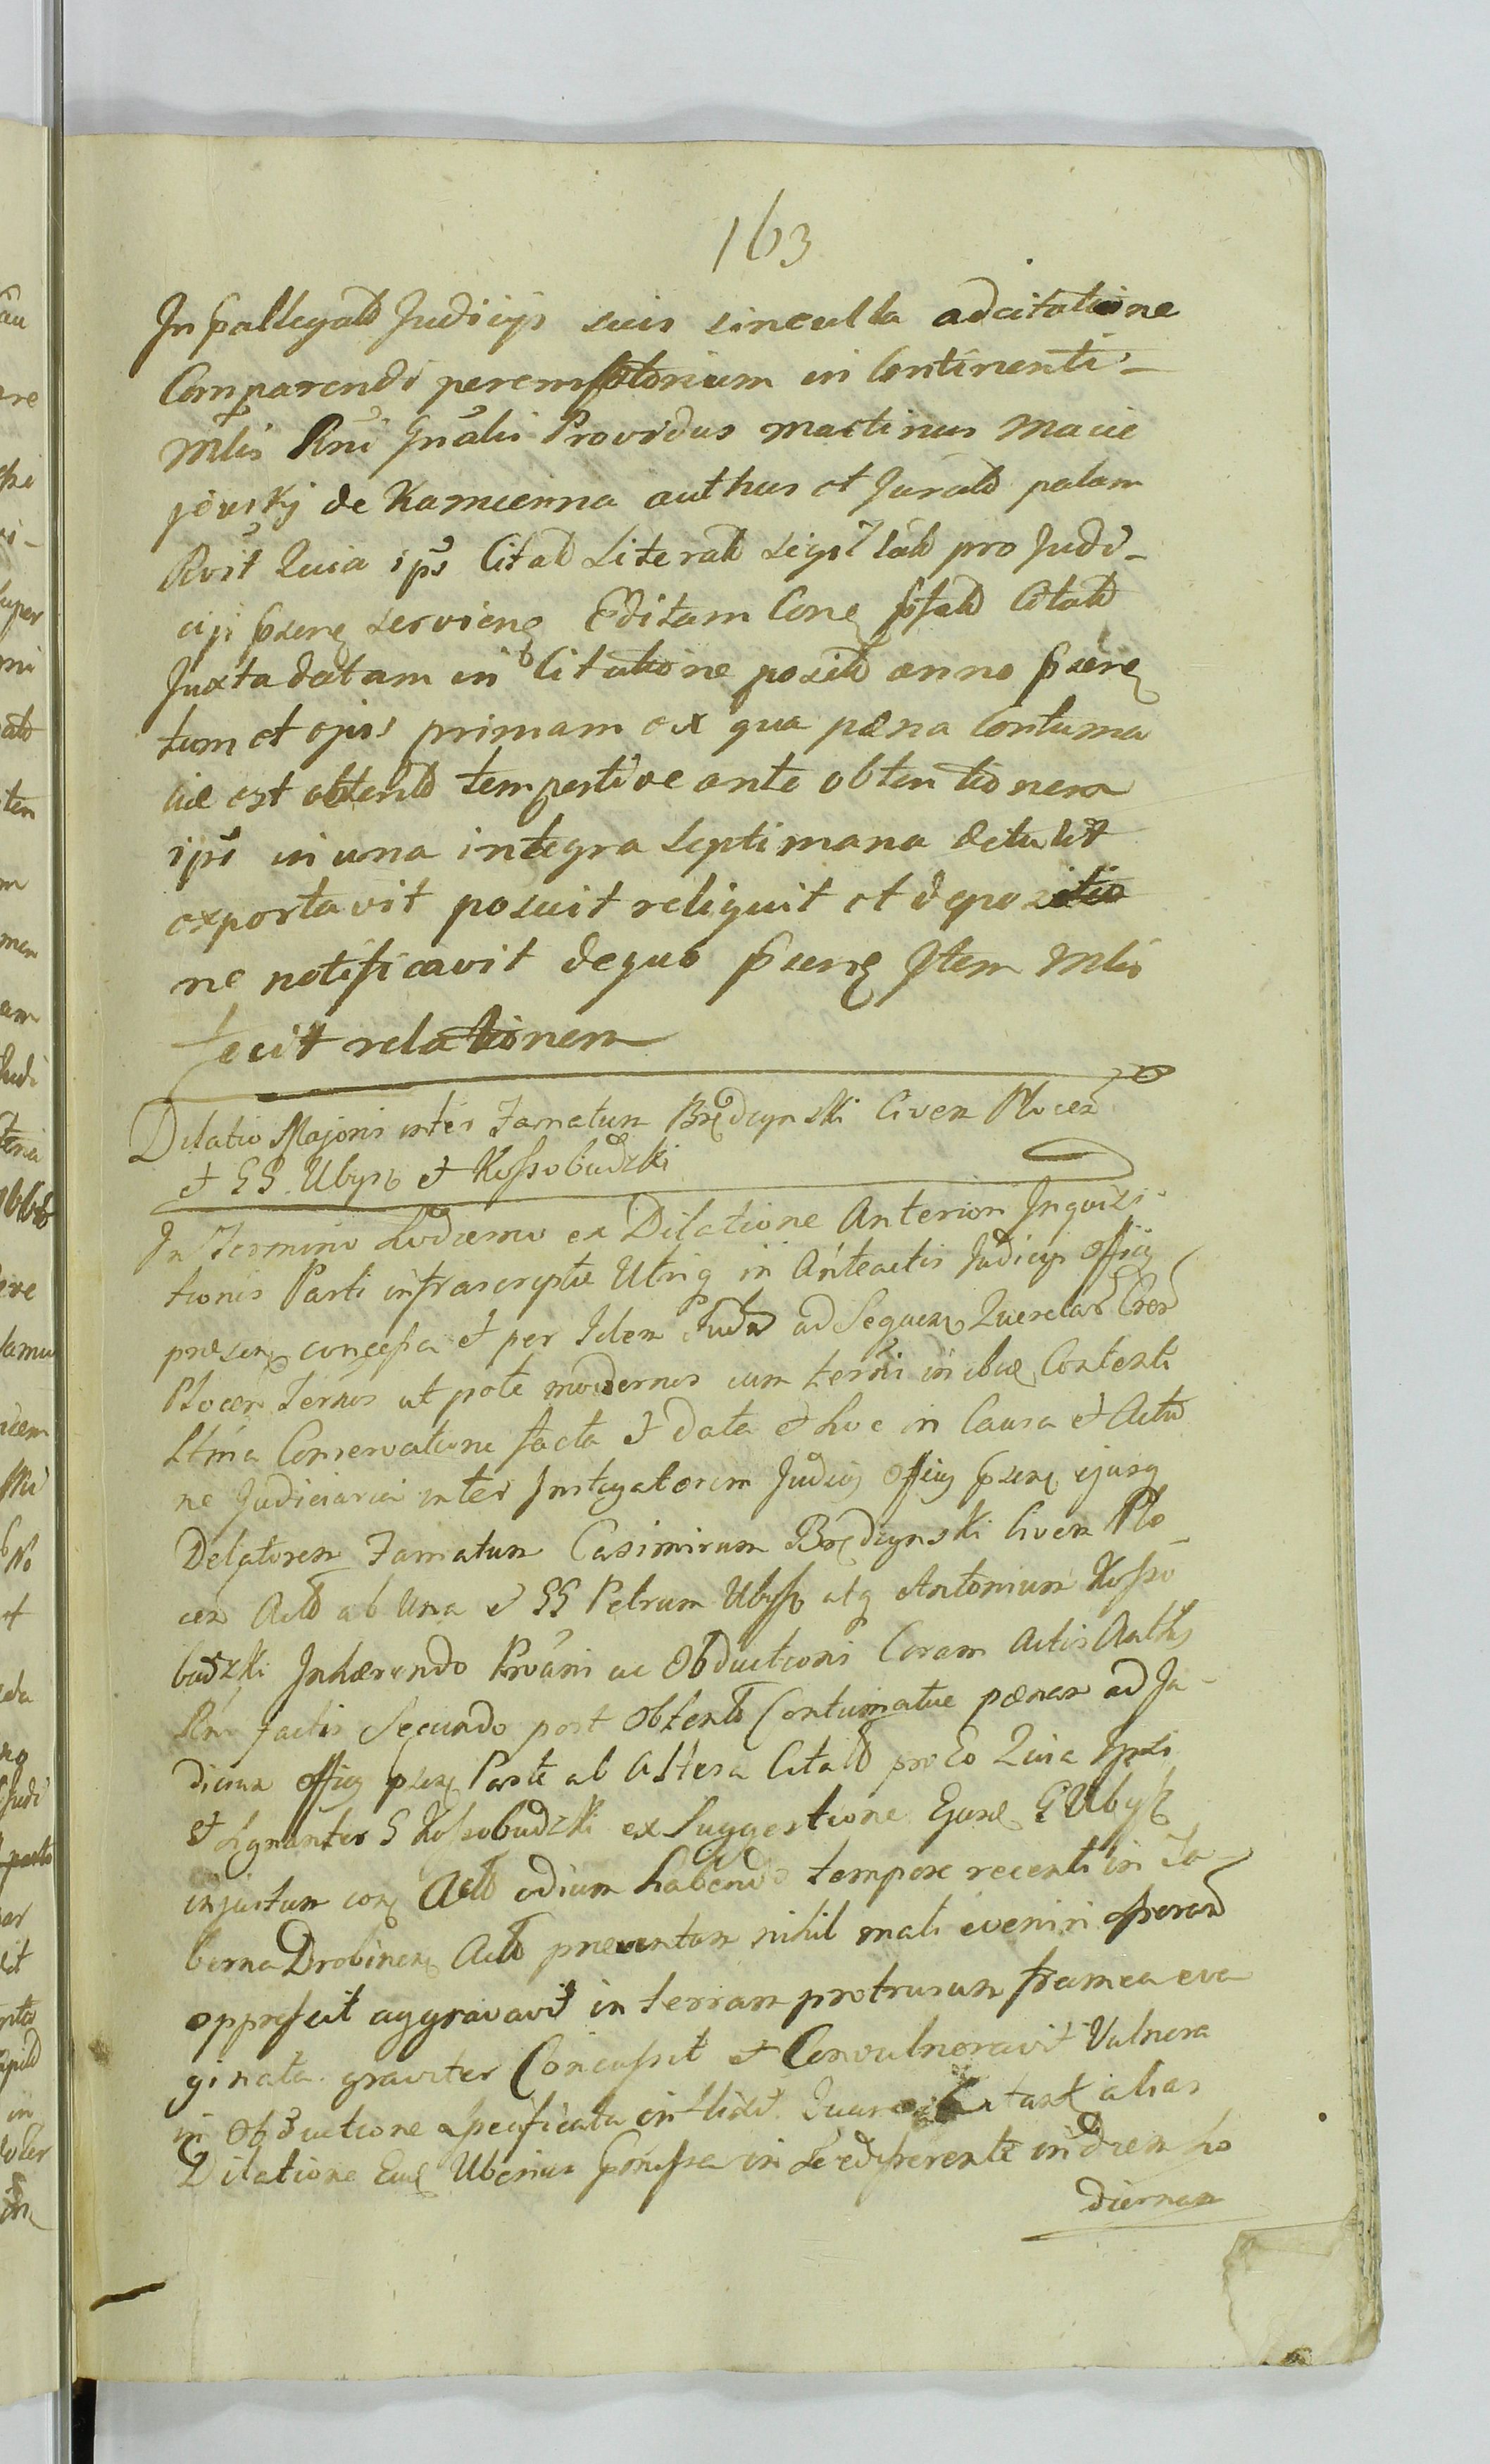 163
In pallegatd Judicijs suis sinculla adcitatione
Comparendi peremptorium in Continenti
Mlis Rni Gnalis Providus Martinus Macie
jewskj de Kamienna authus et Juratd palam
Rvit Quia ips Citatd Literatd Sigillatd pro Judi-
cijs psenę servienę Editam Conę pstatd Citatd
Juxta datam in Citatione positd anno psenę
tum et ejus primam ex qua pæna Contuma
ciæ est obtentd tempestive ante obtentionem
ipsi in una integra septimana detulit
exportavit posuit reliquit et depozitio
ne notificavit dequo psenę Item Mlis
fecit relationem
Dilatio Majoris inter Famatum Brędzynski Civem Plocen
et GG Ubysz et Kossobudzki
In Termino hodierno ex Dilatione Anteriori Inquisi-
tionis Parti infrascriptæ Utriq in Anteactis Judicijs Officij
præsenę concessa et per Idem Judm ad Sequenę Querelard Cren
Plocen Terras ut pote modernos cum termi in ibię Contenti
Ltma Conservatione facta et data et hoc in Causa et Actio
ne Judiciaria inter Instigatorem Judicij Officij psenę ejusq
Delatorem Famatum Casimirum Brędzynski Civem Plo
cen Actd ab Una et GG Petrum Ubysz atq Antonium Kosso
budzki Inhærendo Prvani ac Obductionis Coram Actis Authis
Rni factis Secundo post Obtentd Contumatiæ pænam ad Ju-
dicium Officij psenę Parte ab Altera Citatd pro Eo Quia Ipsi
et Signanter G Kossobudzki ex Suggestione Ejusd G Ubysz
injustum conę Actd odium habendo tempore recenti in Ta
berna Drobinenę Actd preventum nihil mali eveniri sperand
oppressit aggravavit in terram protrusum framea eva
ginata graviter Concussit et Convulneravit Vulnera
in Obductione Specificata inflixit. alias
Dilatione Ejusd Uberius in in diem ho
diernam